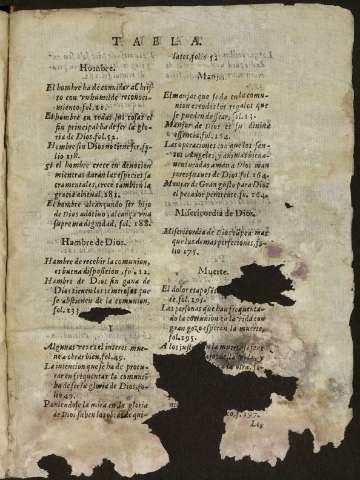 TABLA.
Hombre.
El hombre ha de combidar al
to con rv humilde reconoci-
miento. fol. 20.
El hombre en todas sus cosas el
fin principal ha de ser la glo-
ria de Dios. fol. 52.
Hombre sin Dios no tiene ser, fo-
lio 218.
el hombre crece en deuocion
mientras durān las especies sa
cramentales, crece tambiē la
gracia abitual, 282.
El hombre alcançando ser hijo
de Dios adotiuo, alcança vna
suprema dignidad, fol. 288.
Hambre de Dios.
Hambre de recebir la comunion,
es buena disposicion, fo. 12.
Hambre de Dios, sin gana de
Dios tienen los
se abstienen de la comunion,
fol. 233
I
Algunas vezes el interes mue-
ue a obrar bien. fol. 49.
La intencion que se ha de procu-
rar en frequentar la comuniō
ha de ser la gloria de Dios, fo-
lio 49.
Poniendose la mira en la gloria
de Dios se
fol. 52
Manjar.
El manjar que se da en la comu-
nion excede a los regalos que
se pueden desear, fol. 23.
Manjar de Dios es su diuina
essencia, fol. 164.
Las operaciones con que los san-
tos Angeles, y animas bien a-
uenturadas aman a Dios son
postres dulces de Dios fol. 164
Manjar de Gran gusto para Dios
el pecador penitente, fo. 164.
Misericordia de Dios.
Misericordia de Dios
que las demas perfecciones, fo-
lio 175.
Muerte.
El dolor
de fol. 291.
Las personas que han frequenta-
do la comunion en la vida con
gran gozo esperan la muerte,
fol. 295.
A los justos
297.
Los